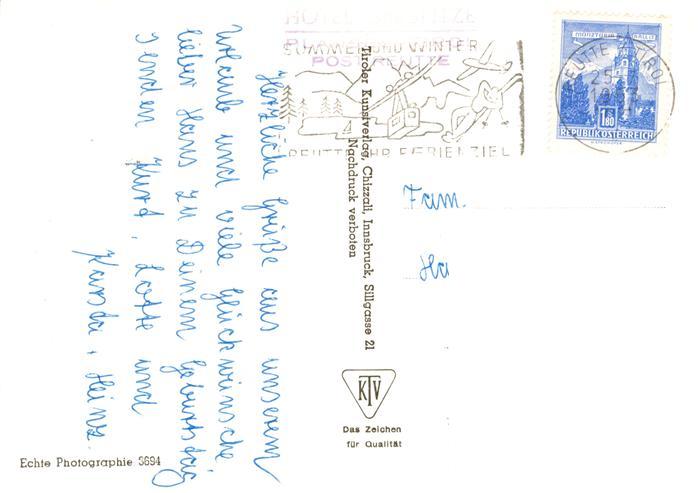 Herzliche Grüße aus unserem
Urlaub und viele Glückwünsche
lieber Hans zu Deinem Geburtstag
senden Kurd, Lotte und
Karsta, Heinz.
Echte Photographie 3694
Tiroler Kunstverlag, Chizzali, Innsbruck, Sillgasse 21
Nachdruck verboten
KTV
Das Zeichen
für Qualität
HOTEL
POST REUTTE
SOMMER UND WINTER
REUTTE IHR FERIENZIEL
REUTTE TIROL
25
MÜNZTURM HALL
1.80
REPUBLIK ÖSTERREICH
Fam.
Ha